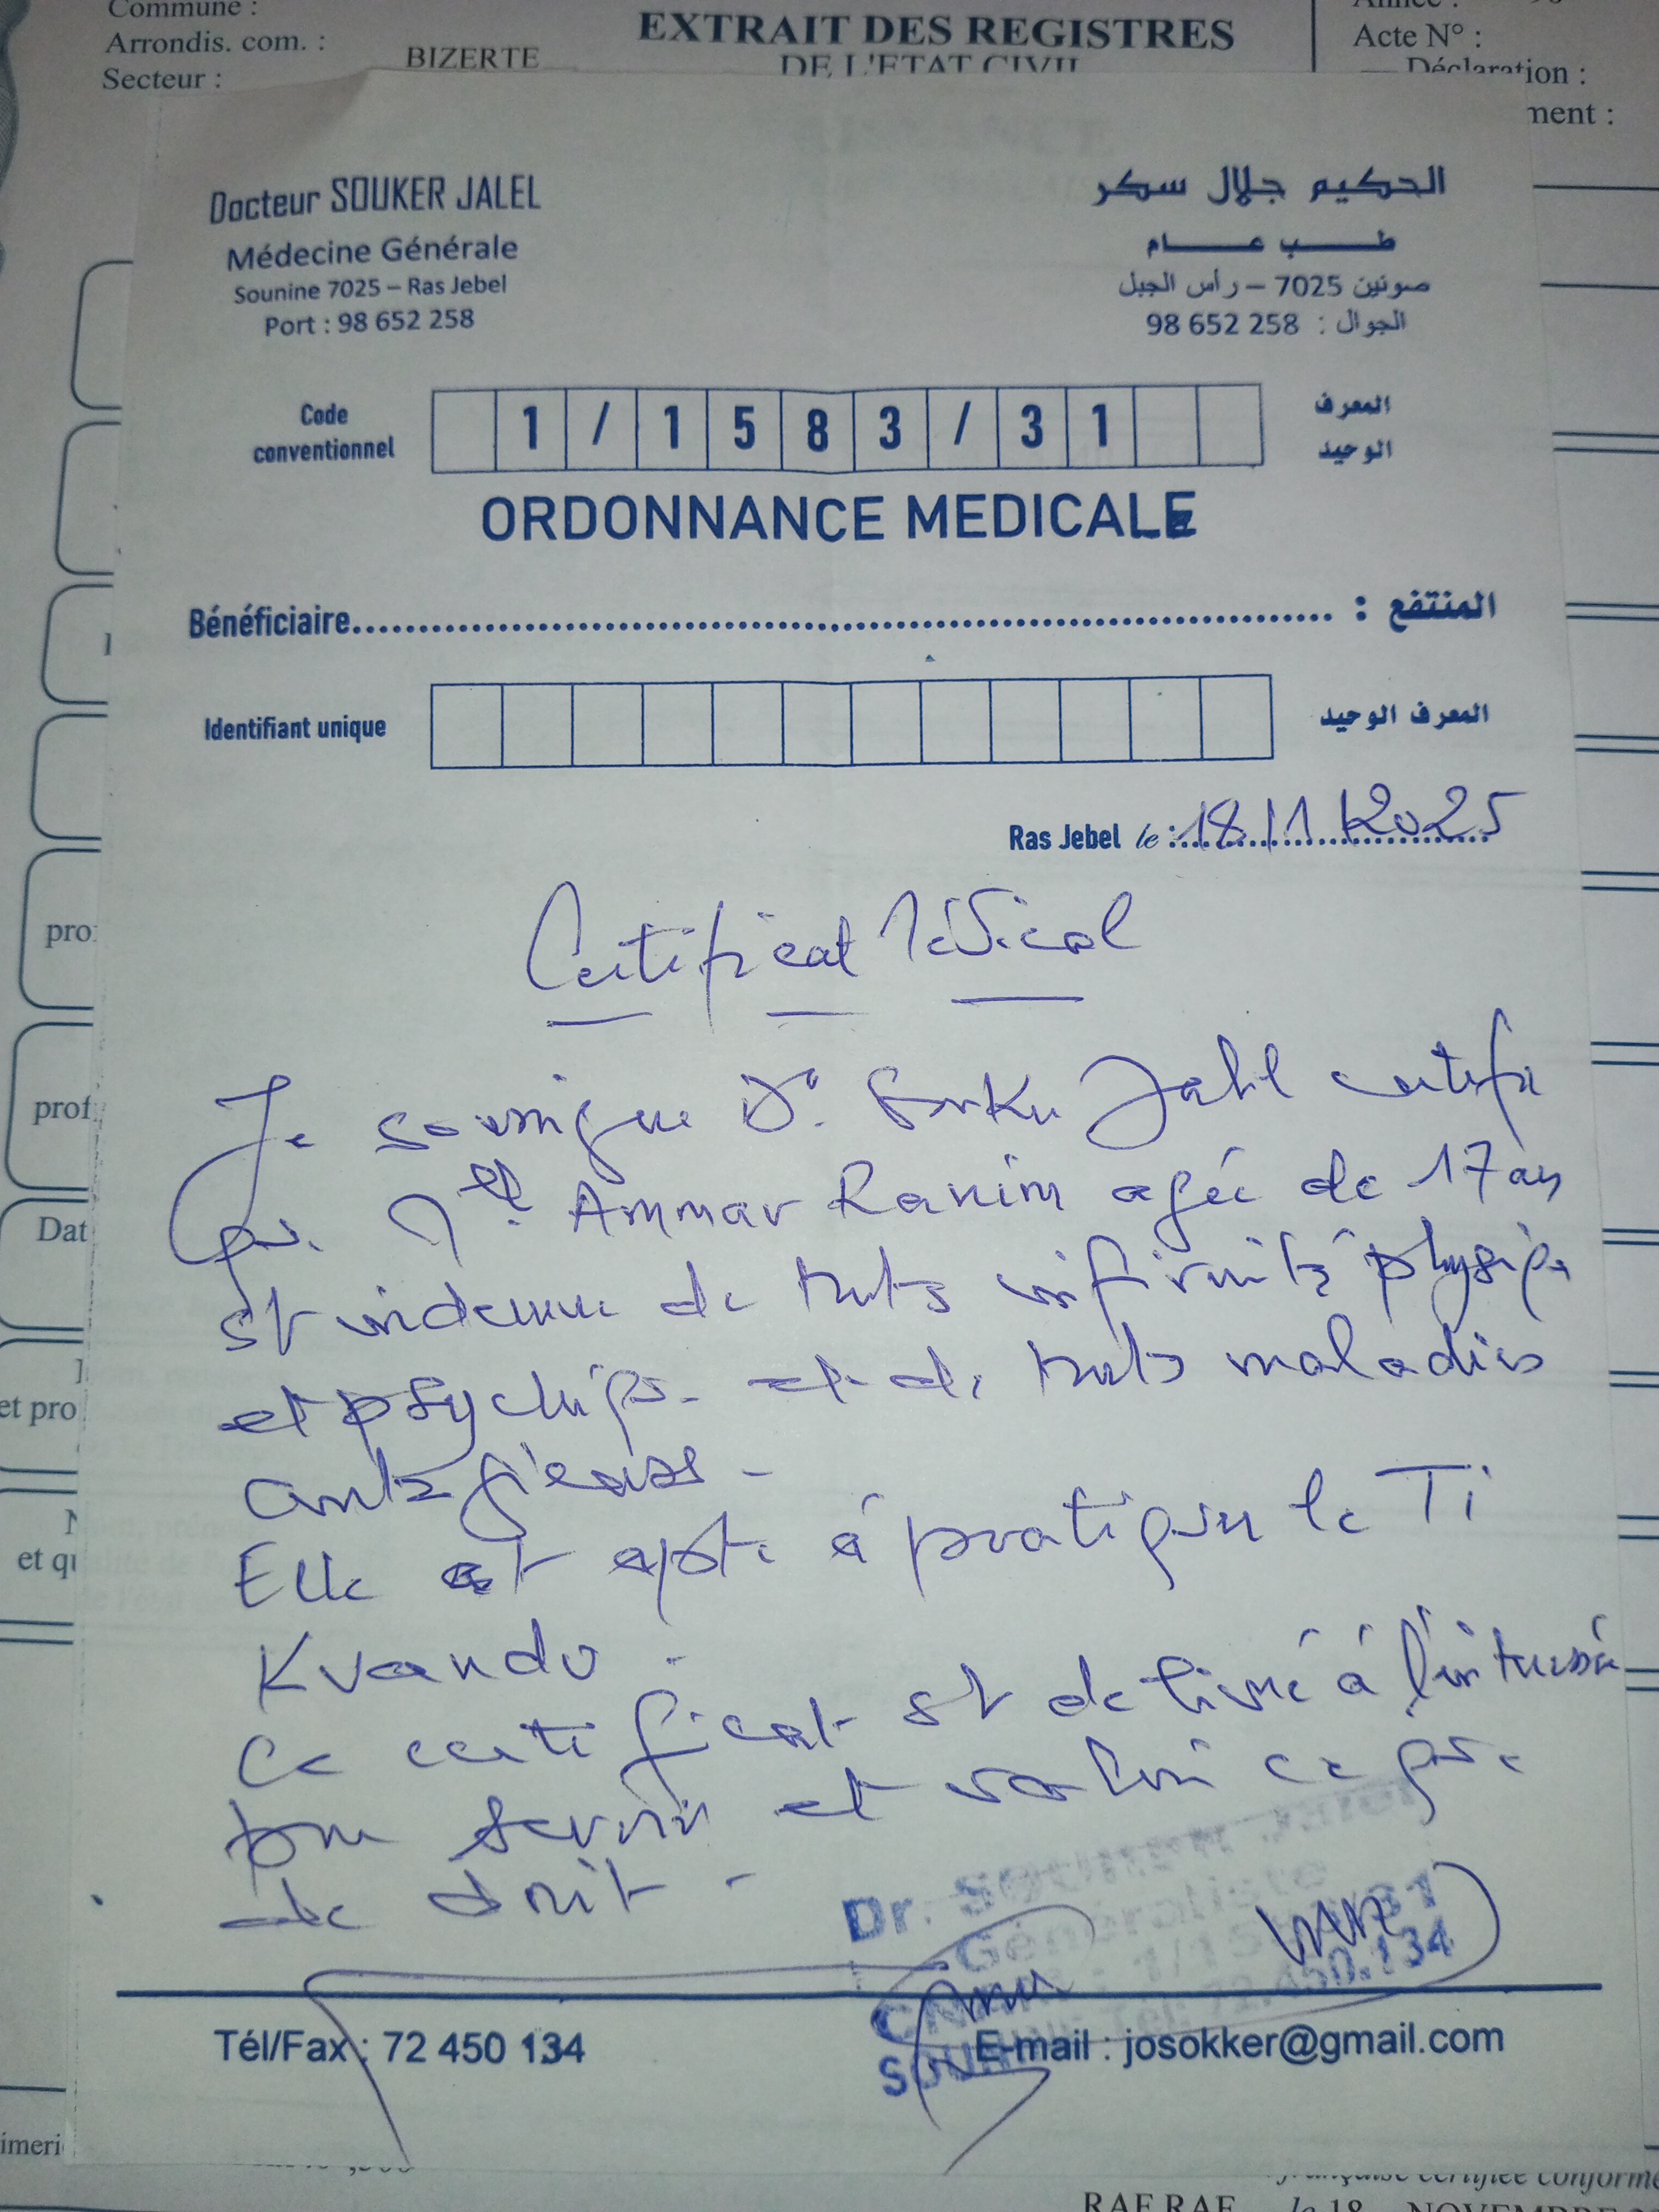 Commune :
Arrondis. com. :
Secteur :
BIZERTE
EXTRAIT DES REGISTRES
DE L'ETAT CIVIL
Acte N° :
Déclaration :
ment :
Docteur SOUKER JALEL
Médecine Générale
Sounine 7025 – Ras Jebel
Port : 98 652 258
الحكيم جلال سكر
طب عام
صونين 7025 – رأس الجبل
الجوال : 98 652 258
Code conventionnel
1 / 1 5 8 3 / 3 1
المعرف الوحيد
ORDONNANCE MEDICALE
Bénéficiaire
المنتفع :
Identifiant unique
المعرف الوحيد
Ras Jebel le : 18/11/2025
Certificat Médical
Je soussigné Dr. Souker Jalel certifie
que Mlle Ammar Ranim agée de 17 ans
est indemne de toutes infirmités physique
et psychique et de toutes maladies
contagieuses -
Elle est apte à pratiquer le Ti
Kwando .
Ce certificat est délivré à l'intéressée
pour servir et valoir ce que
de droit -
Dr.
Généraliste
72.450.134
Tél/Fax : 72 450 134
E-mail : josokker@gmail.com
pro
prof
Dat
et pro
et qu
imeri
française certifiée conforme
RAF RAF le 18 NOVEMBRE